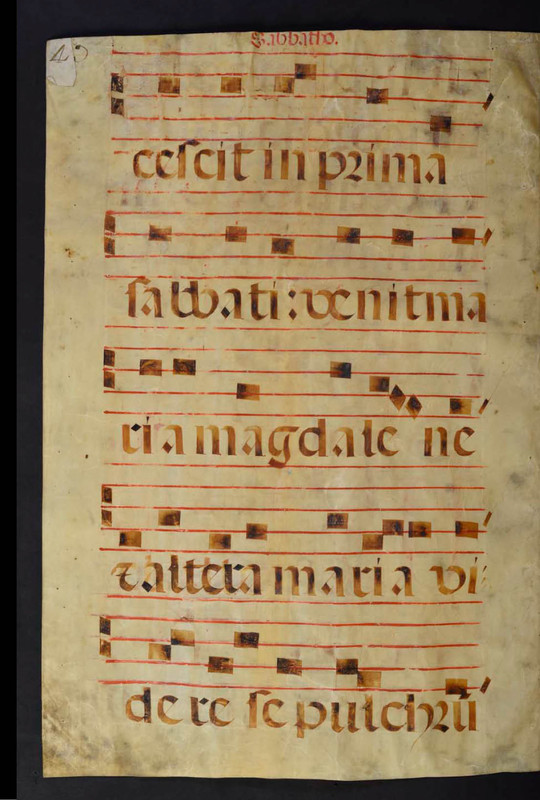 Sabbatho.
43
cescit in prima
sabbati: venit ma
ria magdale ne
et altera maria vi
dere sepulchrū